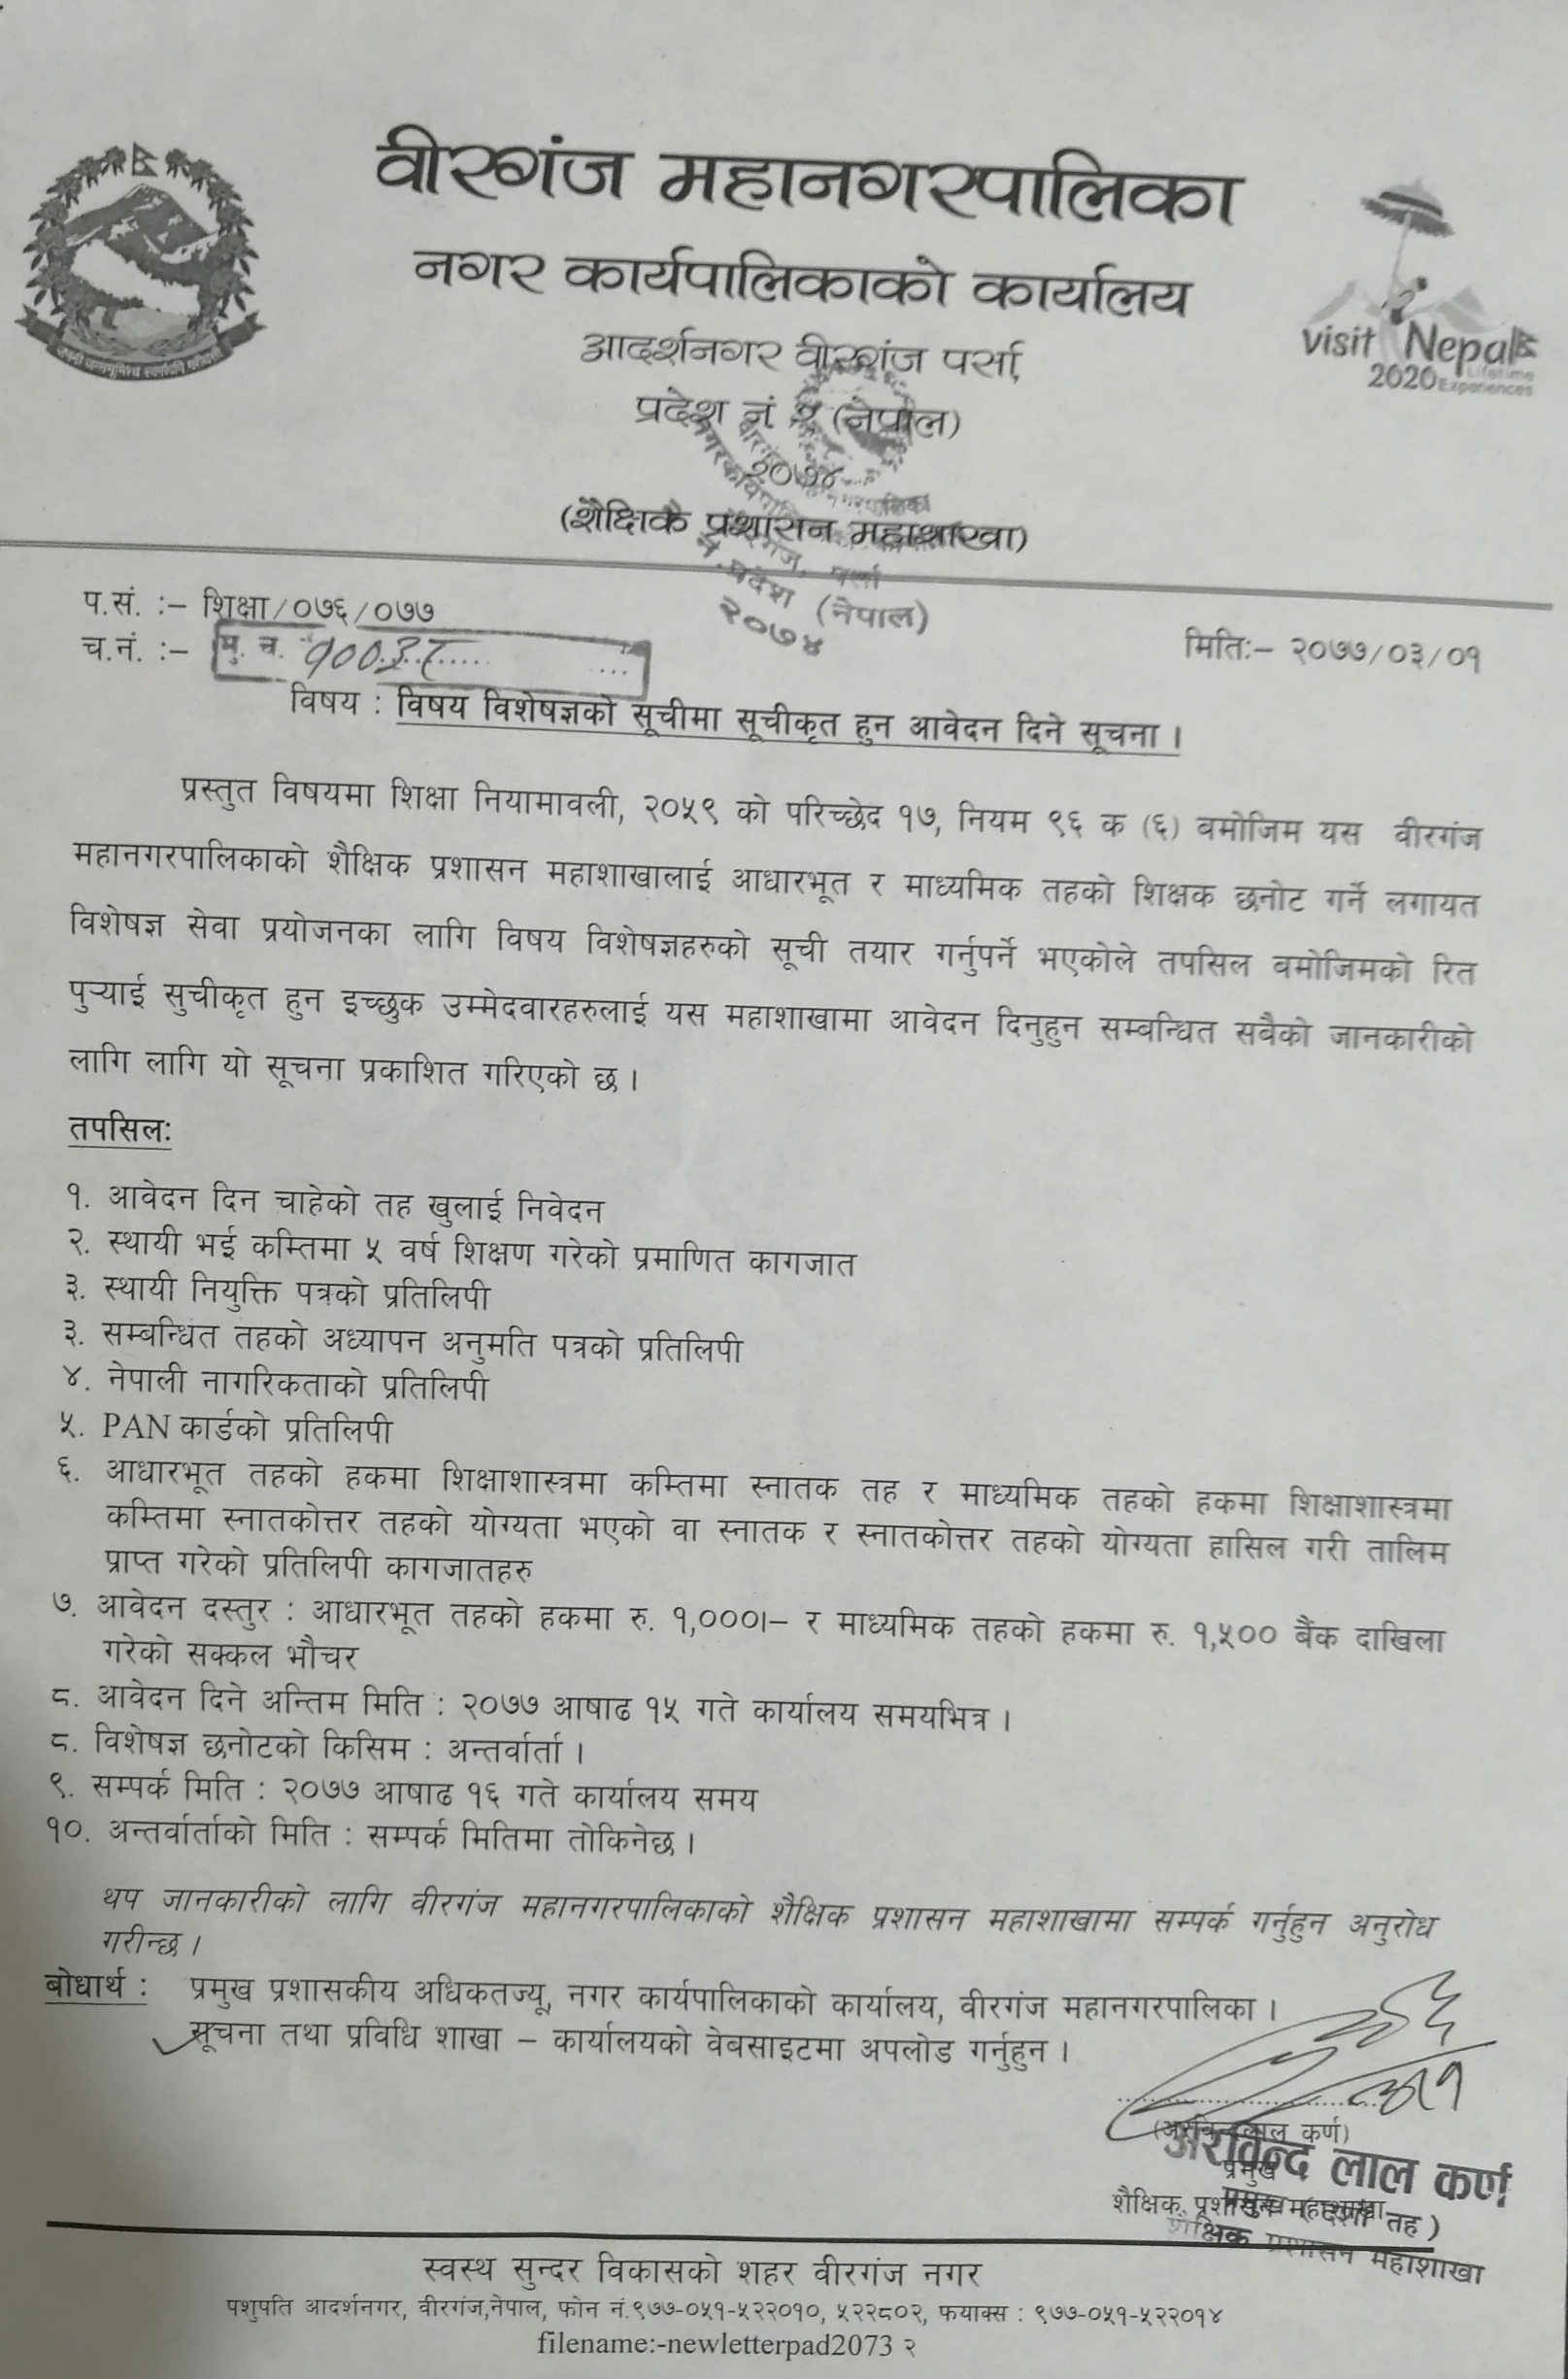 वीरगंज महानगरपालिका
नगर कार्यपालिकाको कार्यालय
आदर्शनगर वीरगंज पर्सा,
प्रदेश नं २ (नेपाल)
visit Nepal
Lifetime
2020 Experiences
२०७४
(शैक्षिक प्रशासन महाशाखा)
प.सं. :– शिक्षा/०७६/०७७
(नेपाल)
२०७४
च.नं. :–
मितिः– २०७७/०३/०१
विषय : विषय विशेषज्ञको सूचीमा सूचीकृत हुन आवेदन दिने सूचना ।
प्रस्तुत विषयमा शिक्षा नियामावली, २०५९ को परिच्छेद १७, नियम ९६ क (६) बमोजिम यस वीरगंज
महानगरपालिकाको शैक्षिक प्रशासन महाशाखालाई आधारभूत र माध्यमिक तहको शिक्षक छनोट गर्ने लगायत
विशेषज्ञ सेवा प्रयोजनका लागि विषय विशेषज्ञहरुको सूची तयार गर्नुपर्ने भएकोले तपसिल बमोजिमको रित
पुऱ्याई सुचीकृत हुन इच्छुक उम्मेदवारहरुलाई यस महाशाखामा आवेदन दिनुहुन सम्बन्धित सबैको जानकारीको
लागि लागि यो सूचना प्रकाशित गरिएको छ ।
तपसिलः
१. आवेदन दिन चाहेको तह खुलाई निवेदन
२. स्थायी भई कम्तिमा ५ वर्ष शिक्षण गरेको प्रमाणित कागजात
३. स्थायी नियुक्ति पत्रको प्रतिलिपी
३. सम्बन्धित तहको अध्यापन अनुमति पत्रको प्रतिलिपी
४. नेपाली नागरिकताको प्रतिलिपी
५. PAN कार्डको प्रतिलिपी
६. आधारभूत तहको हकमा शिक्षाशास्त्रमा कम्तिमा स्नातक तह र माध्यमिक तहको हकमा शिक्षाशास्त्रमा
कम्तिमा स्नातकोत्तर तहको योग्यता भएको वा स्नातक र स्नातकोत्तर तहको योग्यता हासिल गरी तालिम
प्राप्त गरेको प्रतिलिपी कागजातहरु
७. आवेदन दस्तुर : आधारभूत तहको हकमा रु. १,०००।– र माध्यमिक तहको हकमा रु. १,५०० बैंक दाखिला
गरेको सक्कल भौचर
८. आवेदन दिने अन्तिम मिति : २०७७ आषाढ १५ गते कार्यालय समयभित्र ।
८. विशेषज्ञ छनोटको किसिम : अन्तर्वार्ता ।
९. सम्पर्क मिति : २०७७ आषाढ १६ गते कार्यालय समय
१०. अन्तर्वार्ताको मिति : सम्पर्क मितिमा तोकिनेछ ।
थप जानकारीको लागि वीरगंज महानगरपालिकाको शैक्षिक प्रशासन महाशाखामा सम्पर्क गर्नुहुन अनुरोध
गरीन्छ ।
बोधार्थ : प्रमुख प्रशासकीय अधिकतज्यू, नगर कार्यपालिकाको कार्यालय, वीरगंज महानगरपालिका ।
सूचना तथा प्रविधि शाखा – कार्यालयको वेबसाइटमा अपलोड गर्नुहुन ।
(अरविन्द लाल कर्ण)
अरविन्द लाल कर्ण
प्रमुख
शैक्षिक प्रशासन महाशाखा
शैक्षिक प्रशासन महाशाखा
स्वस्थ सुन्दर विकासको शहर वीरगंज नगर
पशुपति आदर्शनगर, वीरगंज,नेपाल, फोन नं.९७७-०५१-५२२०१०, ५२२८०२, फ्याक्स : ९७७-०५१-५२२०१४
filename:-newletterpad2073 २